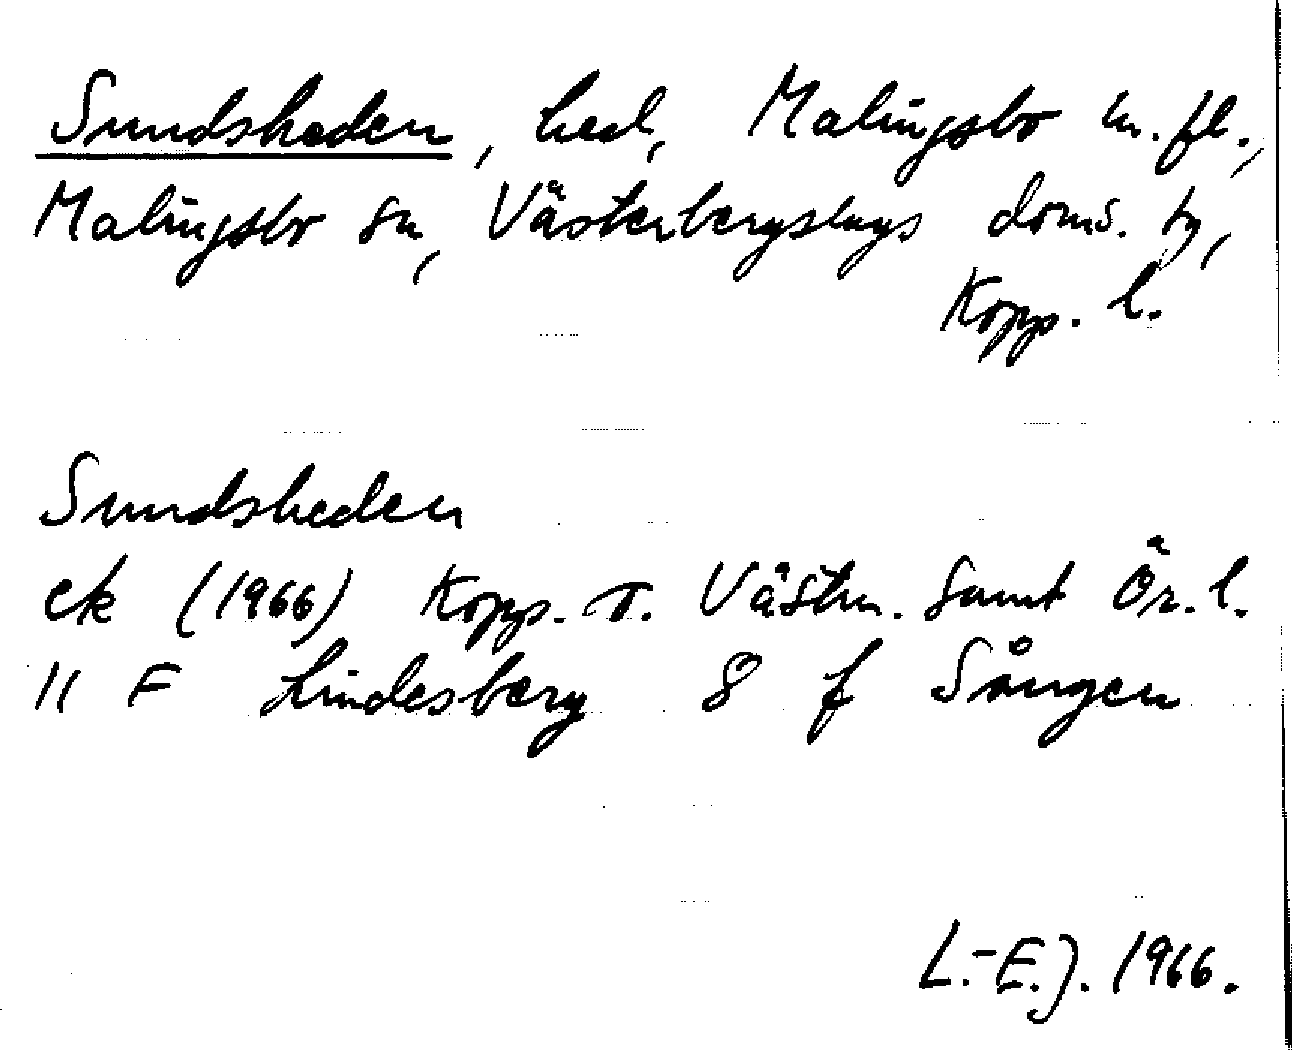 Sundsheden, hed, Malingsbo m.fl.,
Malingsbo sn, Västerbergslags doms. tg,
Kopp. l.
Sundsheden
ek (1966) Kopp. o. Västm. samt Ör. l.
11 F Lindesberg 8 f Sången
L.-E.J. 1966.